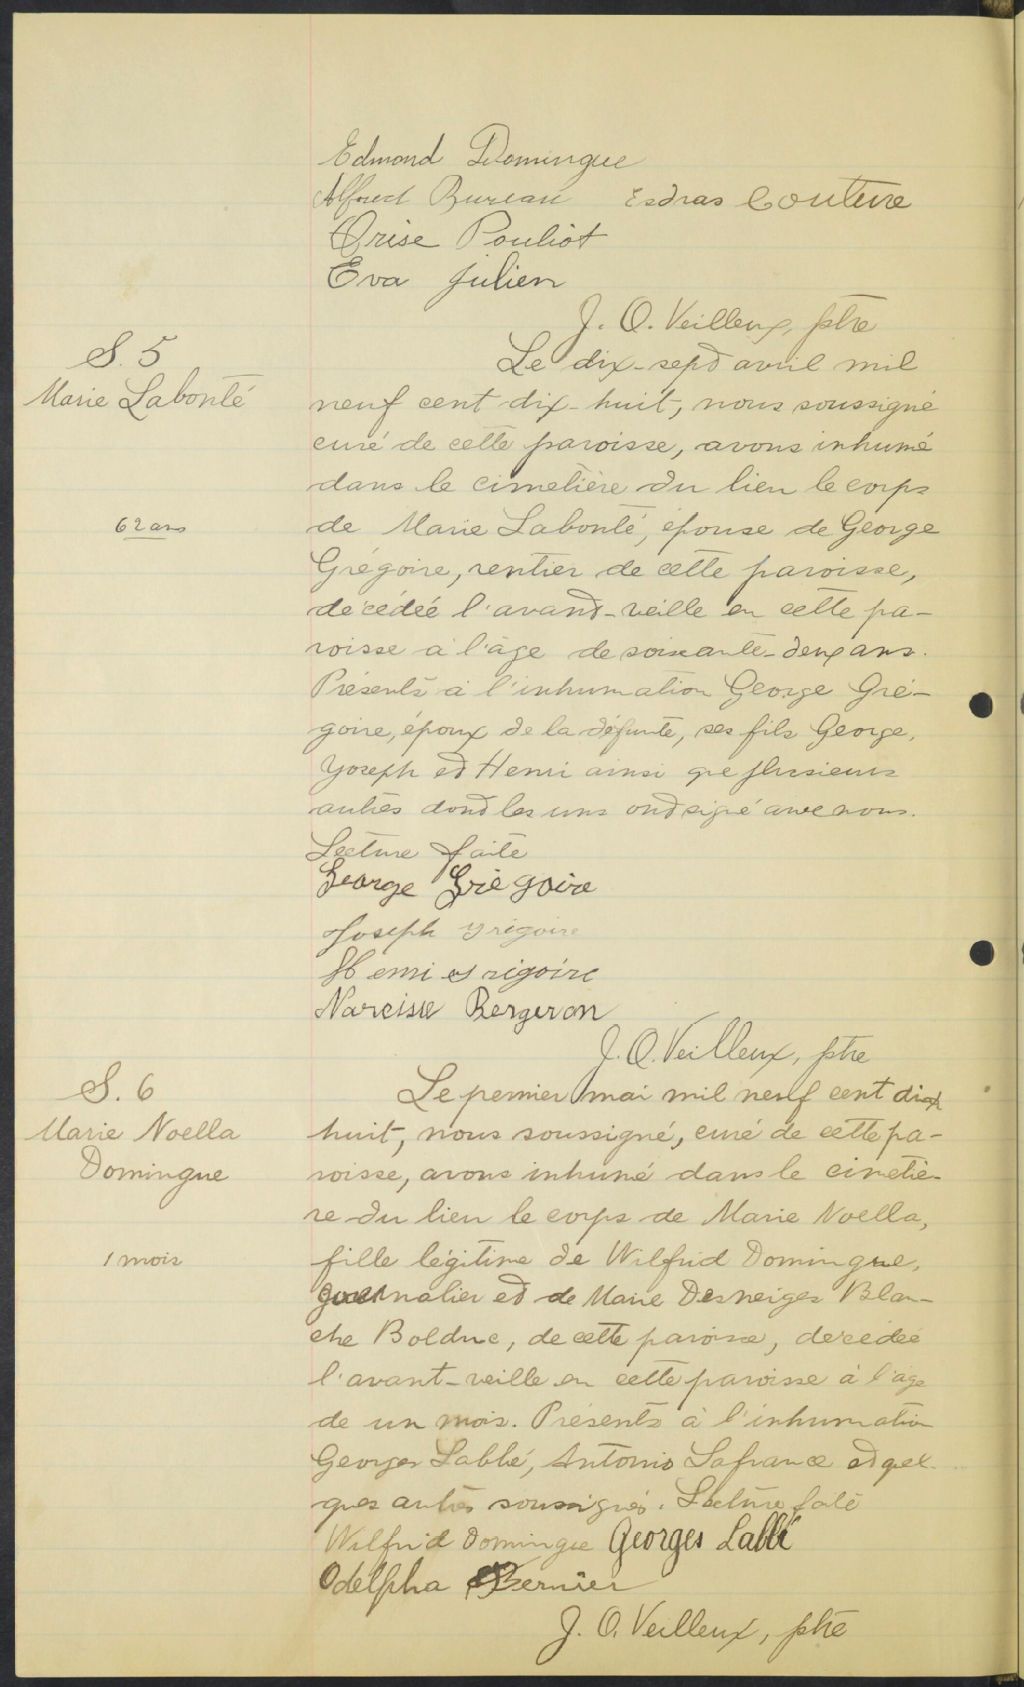 Edmond Domingue
Alfred Bureau Esdras Couture
Orise Pouliot
Eva Julien
J. O. Veilleux, ptre
S. 5
Marie Labonté
62 ans
Le dix-sept avril mil
neuf cent dix-huit, nous soussigné
curé de cette paroisse, avons inhumé
dans le cimetière du lieu le corps
de Marie Labonté, épouse de George
Grégoire, rentier de cette paroisse,
décédée l'avant-veille en cette pa-
roisse à l'âge de soixante-deux ans.
Présents à l'inhumation George Gré-
goire, époux de la défunte, ses fils George,
Joseph et Henri ainsi que plusieurs
autres dont les uns ont signé avec nous.
Lecture faite
George Grégoire
Joseph Grégoire
Henri Grégoire
Narcisse Bergeron
J. O. Veilleux, ptre
S. 6
Marie Noella
Domingue
1 mois
Le premier mai mil neuf cent dix
huit, nous soussigné, curé de cette pa-
roisse, avons inhumé dans le cimetiè-
re du lieu le corps de Marie Noella,
fille légitime de Wilfrid Domingue,
journalier et de Marie Desneiges Blan-
che Bolduc, de cette paroisse, décédée
l'avant-veille en cette paroisse à l'âge
de un mois. Présents à l'inhumation
Georges Labbé, Antonio Lafrance et quel-
ques autres soussignés. Lecture faite
Wilfrid Domingue Georges Labbé
Odelpha Bernier
J. O. Veilleux, ptre